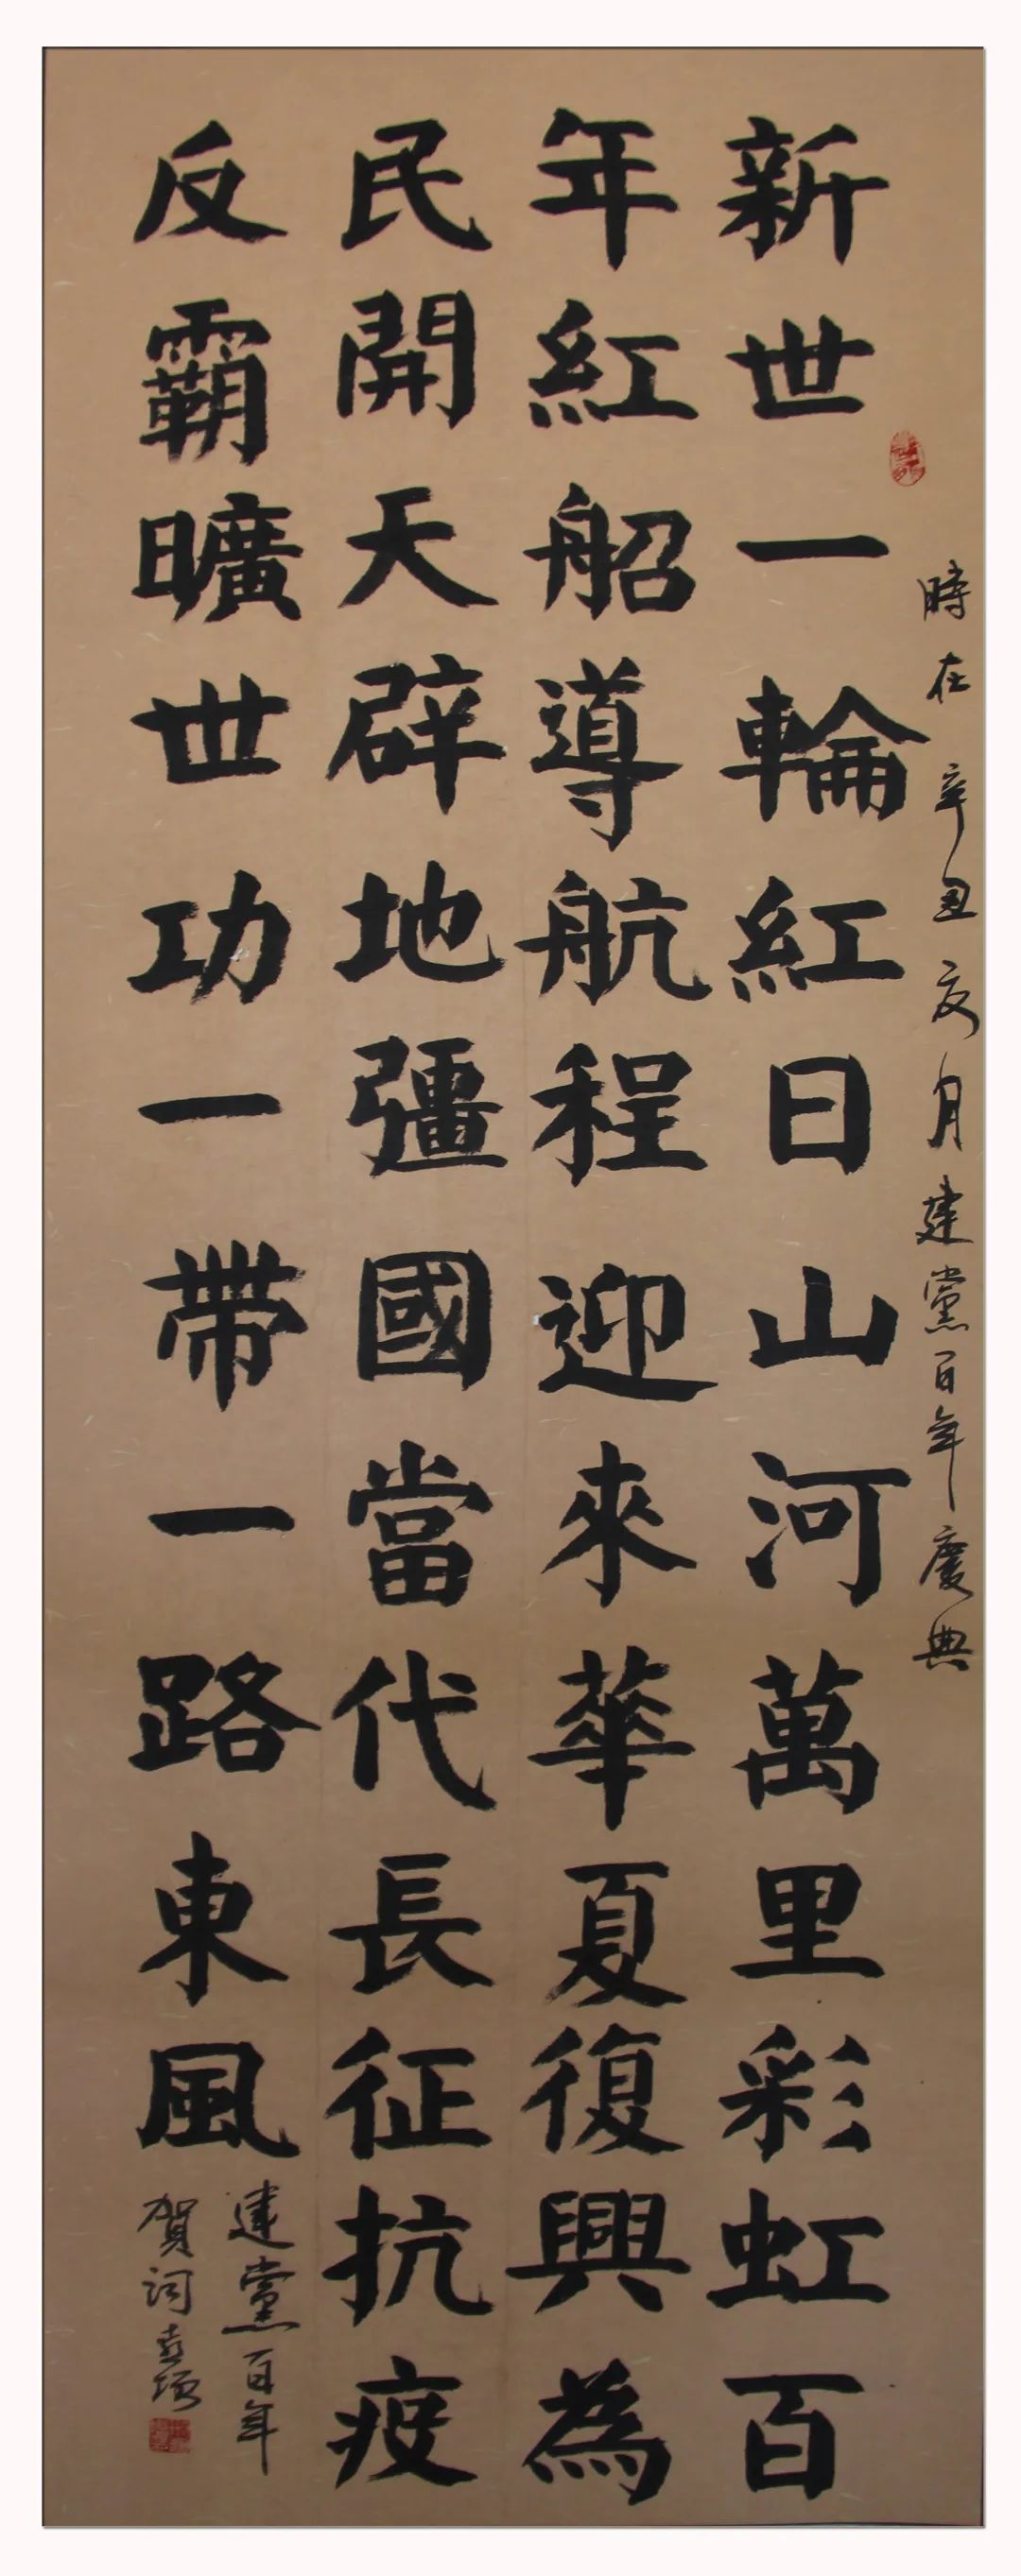 時在辛丑夏月建黨百年慶典
新世一輪紅日山河萬里彩虹百
年紅船導航程迎來華夏復興為
民開天辟地彊國當代長征抗疫
反霸曠世功一帶一路東風
建黨百年
賀詞